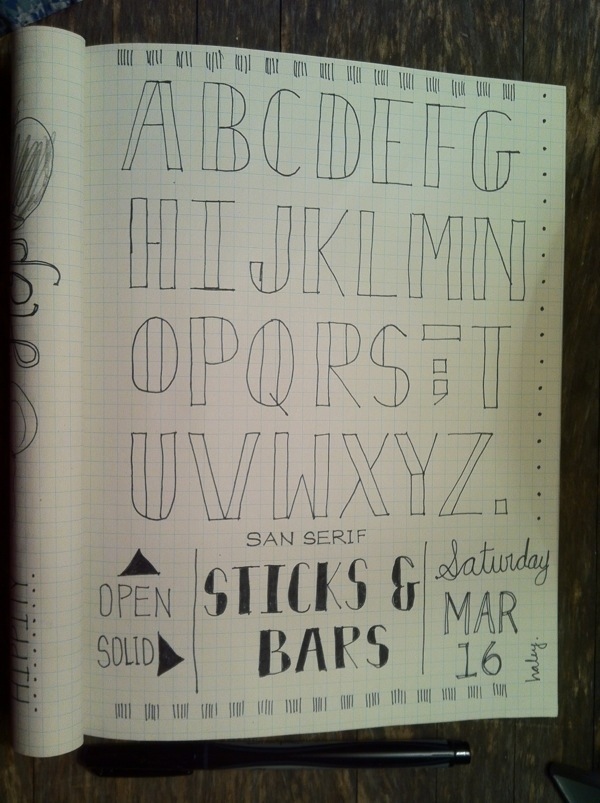 ABCDEFG
HIJKLMN
OPQRS-;T
UVWXYZ.
SAN SERIF
OPEN
SOLID
STICKS &
BARS
Saturday
MAR
16
haley.